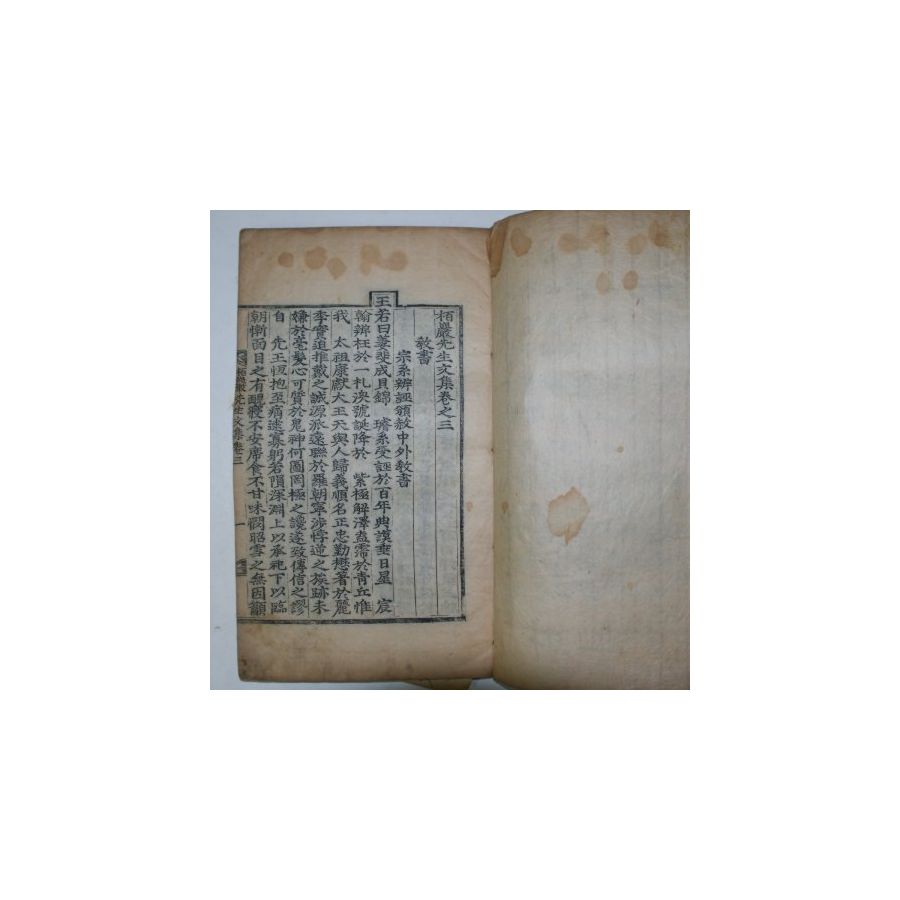 栢巖先生文集卷之三
敎書
宗系辨誣頒赦中外敎書
王若曰萋斐成貝錦 璿系受誣於百年典謨垂日星 宸
翰辨枉於一札渙號誕降於 紫極解澤盍霈於青丘惟
我 太祖康獻大王天與人歸義順名正忠勤懋著於麗
季實迫推戴之誠源派遠聯於羅朝寧涉悖逆之族跡未
嫌於毫髮心可質於鬼神何圖罔極之讒遂致傳信之謬
自 先王恆抱至痛逮寡躬若隕深淵上以承祀下以臨
朝慚面目之有靦寢不安席食不甘味憫昭雪之無因籲
栢巖先生文集卷三 一